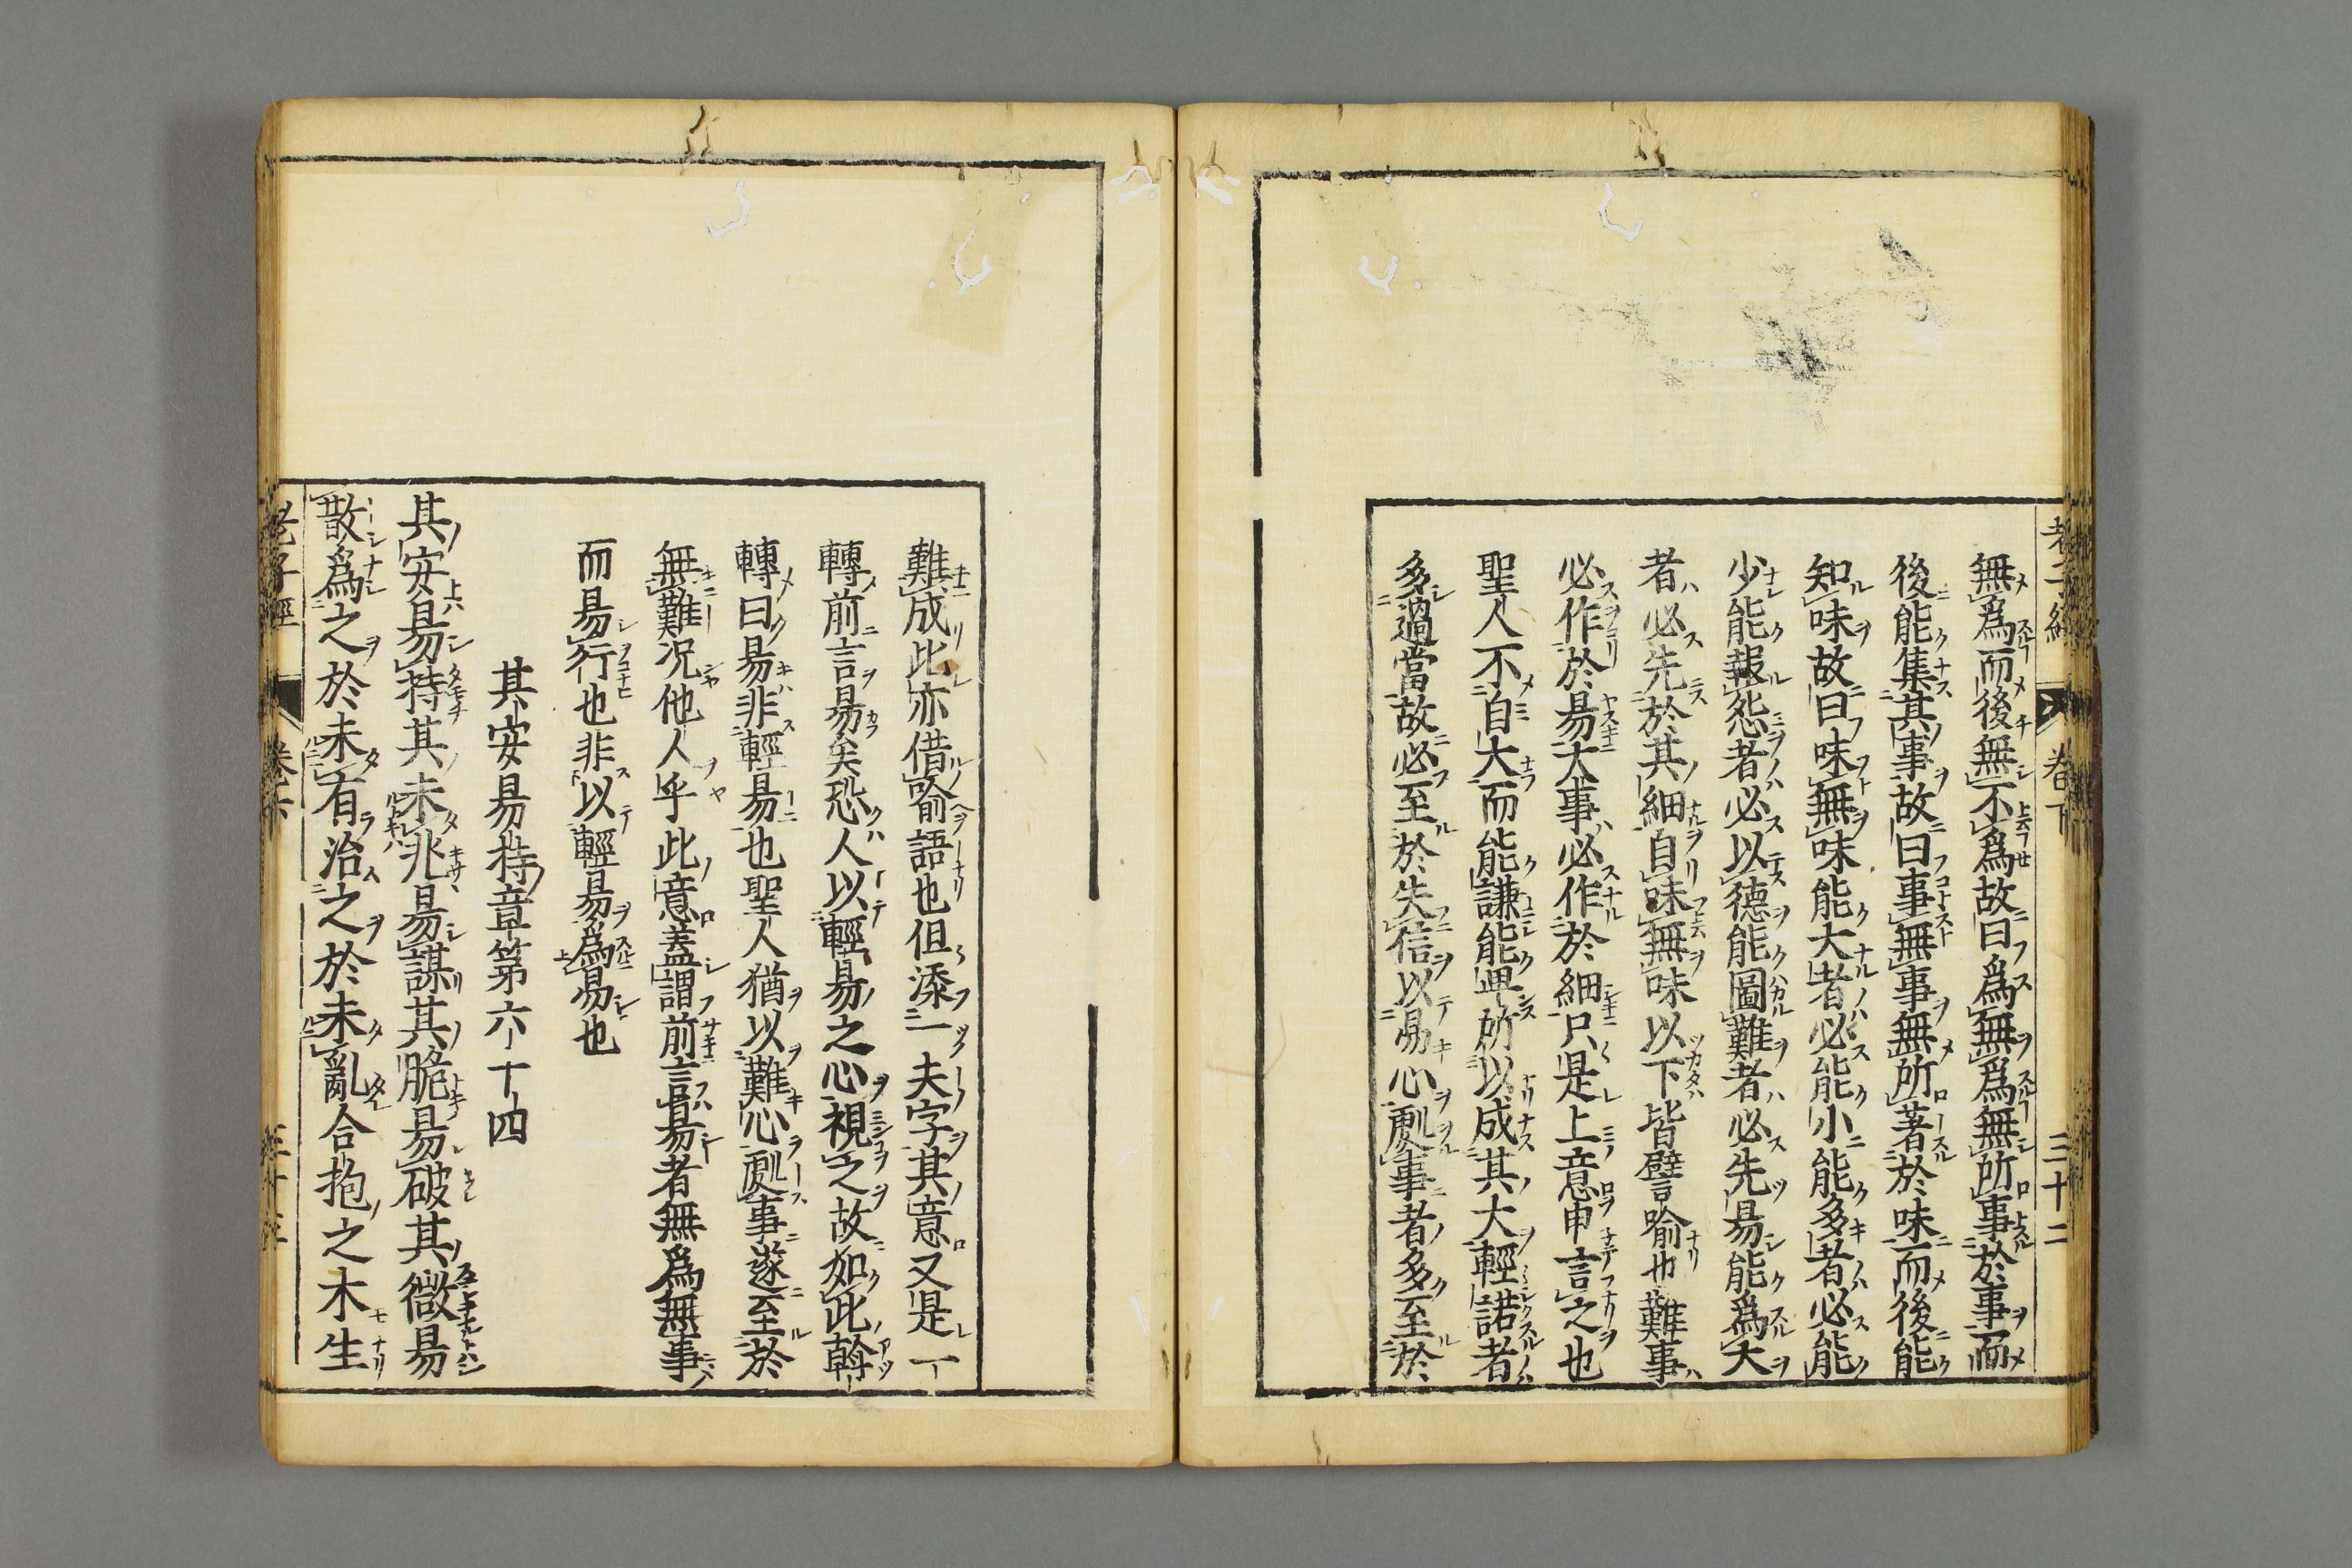 老子經 卷下 三十二
無爲而後無不爲故曰爲無爲無所事於事而
後能集其事故曰事無事無所著於味而後能
知味故曰味無味能大者必能小能多者必能
少能報怨者必以德能圖難者必先易能爲大
者必先於其細自味無味以下皆譬喻也難事
必作於易大事必作於細只是上意申言之也
聖人不自大而能謙能卑所以成其大輕諾者
多過當故必至於失信以易心處事者多至於
難成此亦借喻語也但添一夫字其意又是一
轉前言易矣恐人以輕易之心視之故如此斡
轉曰易非輕易也聖人猶以難心處事遂至於
無難况他人乎此意蓋謂前言易者無爲無事
而易行也非以輕易爲易也
其安易持章第六十四
其安易持其未兆易謀其脆易破其微易
散爲之於未有治之於未亂合抱之木生
老子經 卷下 三十三